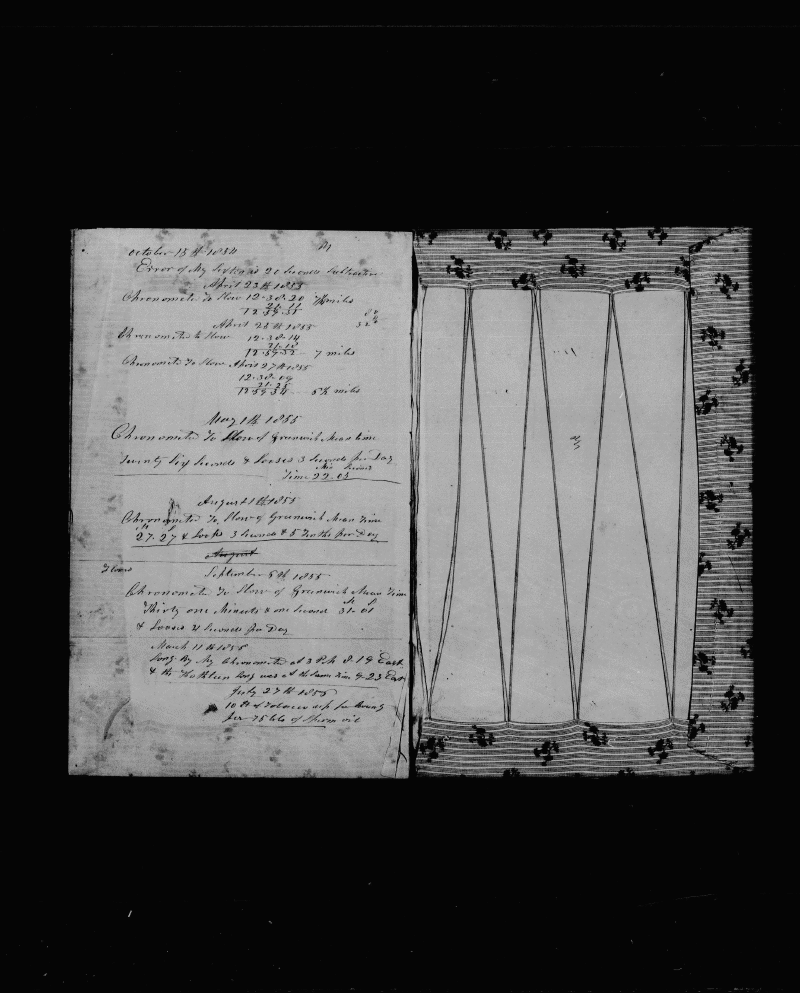 October 15th 1854
Error of My Sextan is 20 Seconds Subtractive
April 23th 1855
Chronometer To Slow 12-38-20 7½ miles
21-11
12-59-31
April 25th 1855
Chronometer to Slow 12-38-14
21-18
12-59-32 7 miles
Chronometer To Slow April 27th 1855
12-38-09
21-25
12-59-34 5½ miles
May 1th 1855
Chronometer To Slow of Greenwich Mean time
Twenty Six Seconds & Looses 3 Seconds per Day
Time 22-05
August 1th 1855
Chronometer To Slow of Greenwich Mean Time
27-27 & Looses 3 Seconds & 5 Tenths per Day
August
September 5th 1855
Chronometer To Slow of Greenwich Mean Time
Thirty one Minuets & one Second 31-01
& Looses 4 Seconds per Day
March 11th 1858
Long By My Chronometer at 3 P.M. 8-19 East
& the Kathleen Long was at the same time 9-23 East
July 27th 1858
10 lb of Tobacco
per 75 bbls of Sperm oil